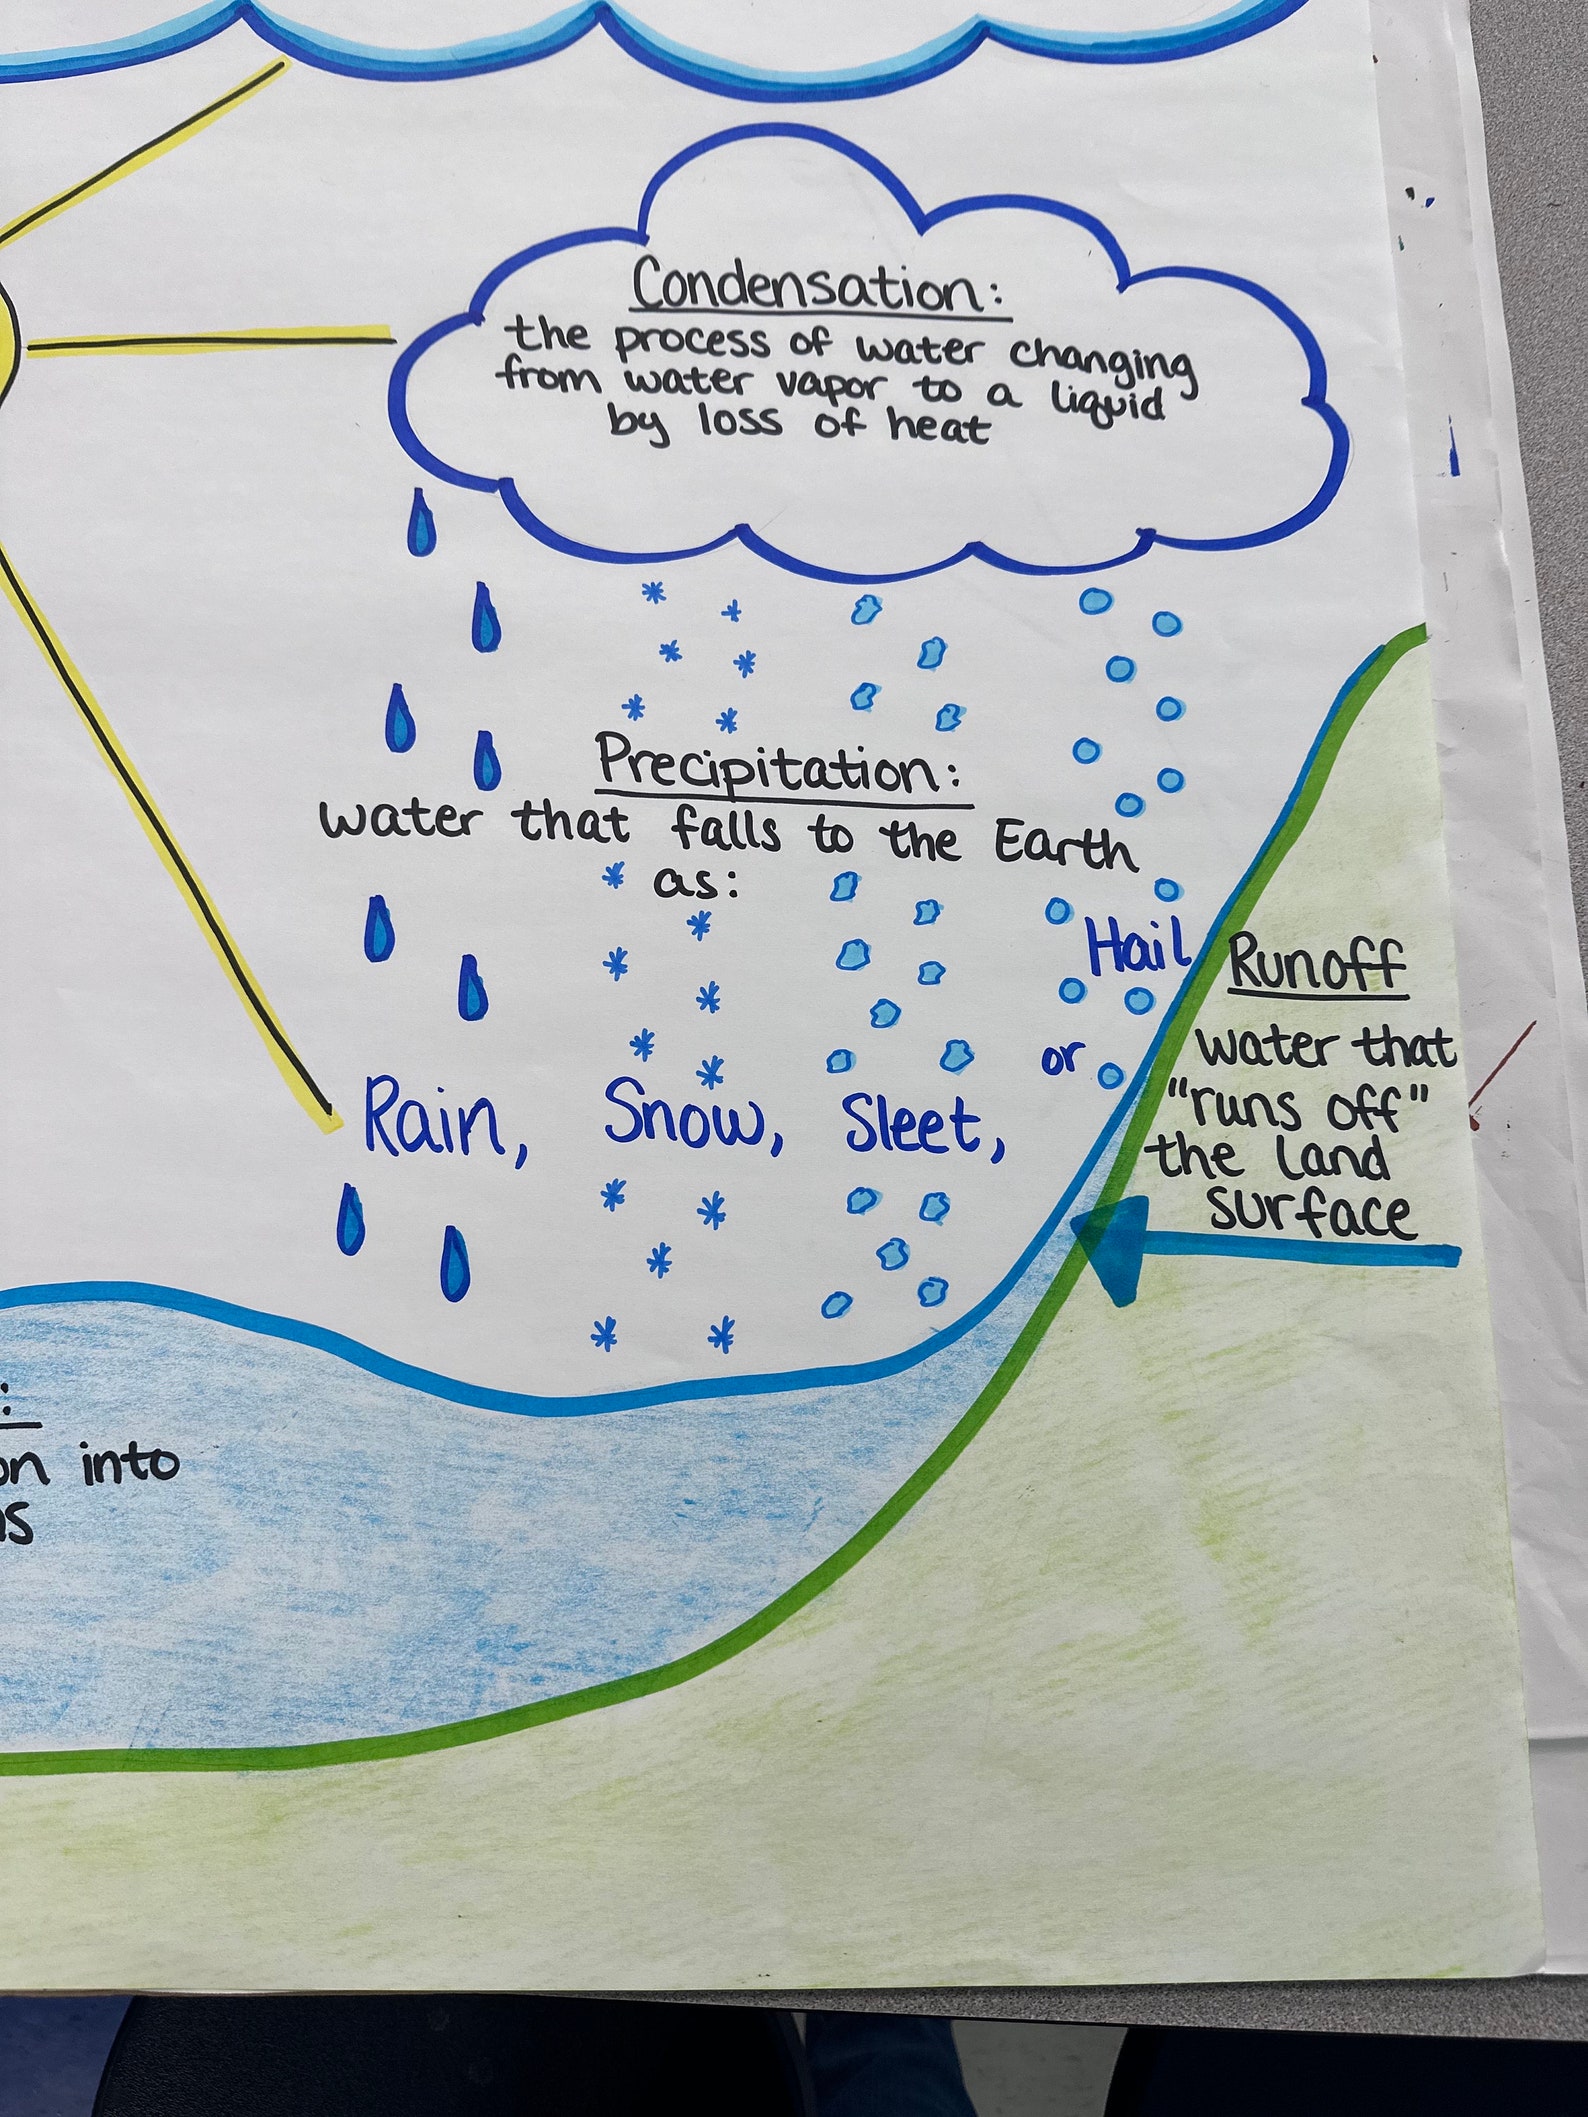 Condensation:
the process of water changing
from water vapor to a liquid
by loss of heat
Precipitation:
water that falls to the Earth
as:
Rain, Snow, Sleet,
or
Hail
Runoff
water that
"runs off"
the land
surface
:
into